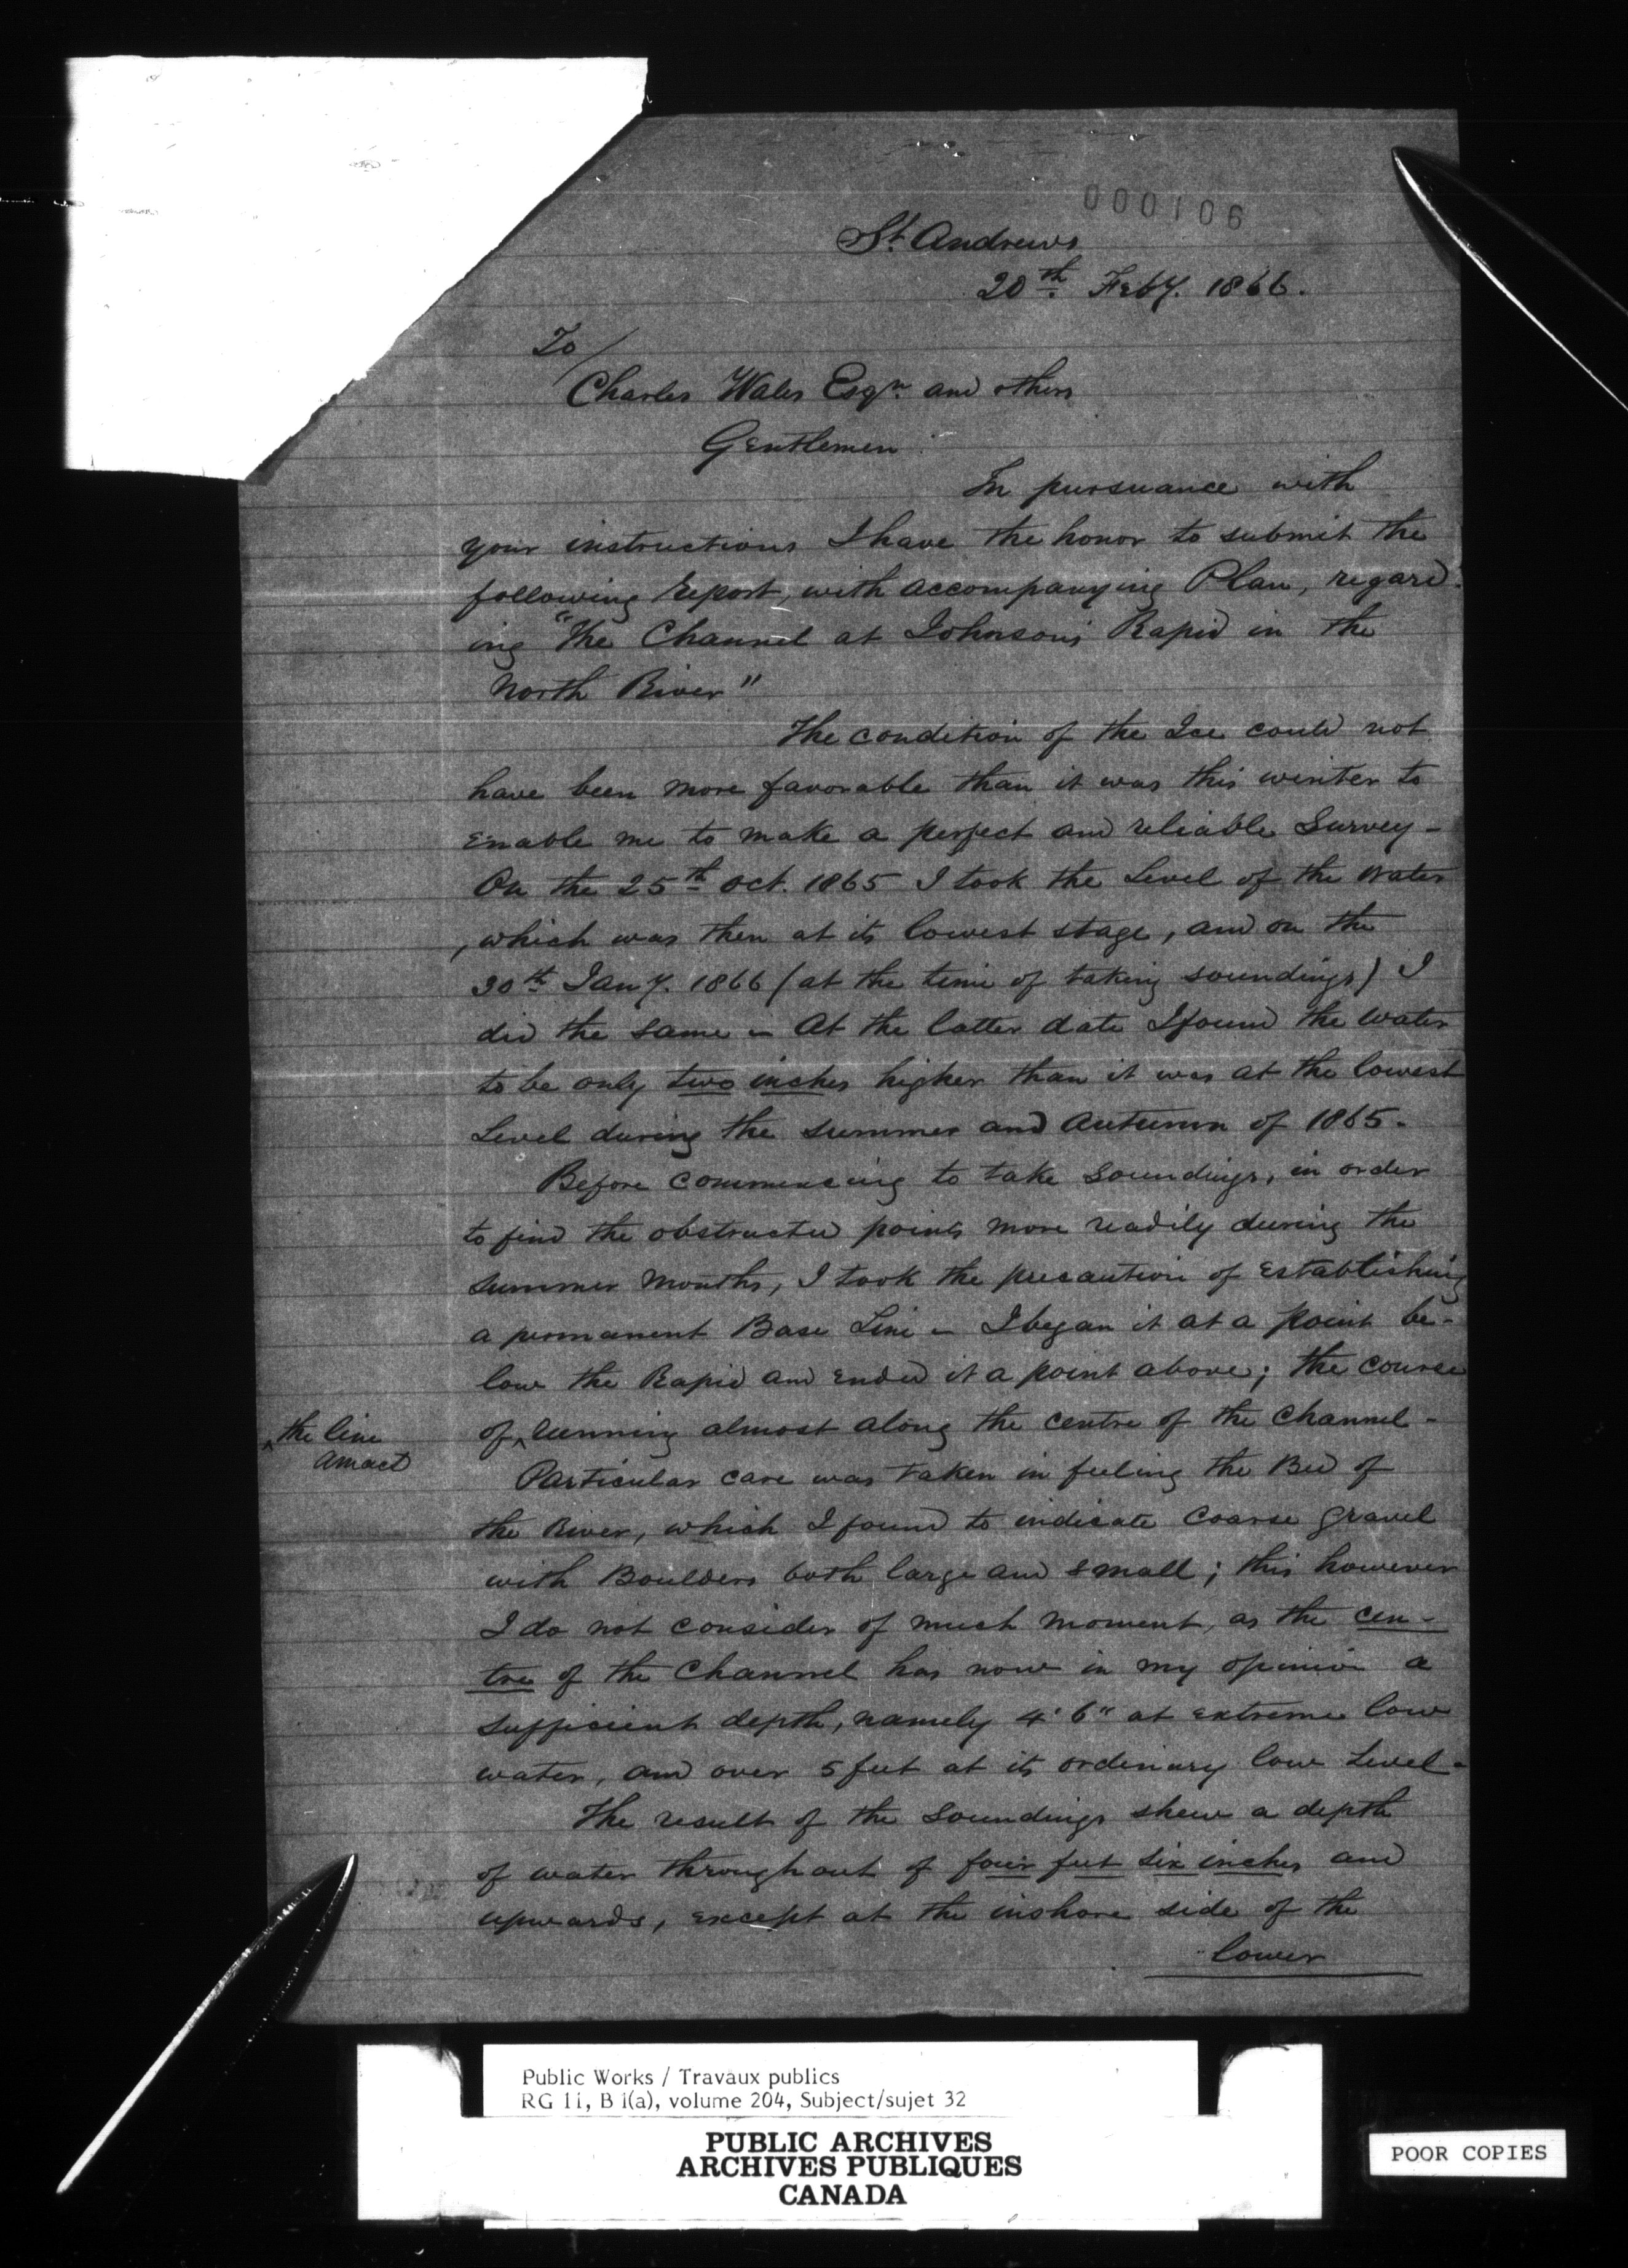 000106
St. Andrews
20th. Feby. 1866.
To/
Charles Wales Esqr. and others
Gentlemen
In pursuance with
your instructions I have the honor to submit the
following report, with accompanying Plan, regard-
ing "The Channel at Johnson's Rapid in the
North River"
The condition of the Ice could not
have been more favorable than it was this winter to
enable me to make a perfect and reliable Survey -
On the 25th Oct. 1865 I took the Level of the Water
, which was then at its lowest stage, and on the
30th Jany. 1866 (at the time of taking soundings) I
did the same - At the latter date I found the water
to be only two inches higher than it was at the lowest
Level during the summer and Autumn of 1865 -
Before commencing to take Soundings, in order
to find the obstructed points more readily during the
summer months, I took the precaution of establishing
a permanent Base Line - I began it at a point be-
low the Rapid and ended it a point above; the course
of ^ running almost along the centre of the Channel -
^ the line
Particular care was taken in feeling the Bed of
the River, which I found to indicate Coarse Gravel
with Boulders both large and small; this however
I do not consider of much moment, as the cen-
tre of the Channel has now in my opinion a
sufficient depth, namely 4' 6" at extreme low
water, and over 5 feet at its ordinary low Level -
The result of the Soundings shew a depth
of water throughout of four feet six inches and
upwards, except at the inshore side of the
lower
Public Works / Travaux publics
RG 11, B 1(a), volume 204, Subject/sujet 32
PUBLIC ARCHIVES
ARCHIVES PUBLIQUES
CANADA
POOR COPIES